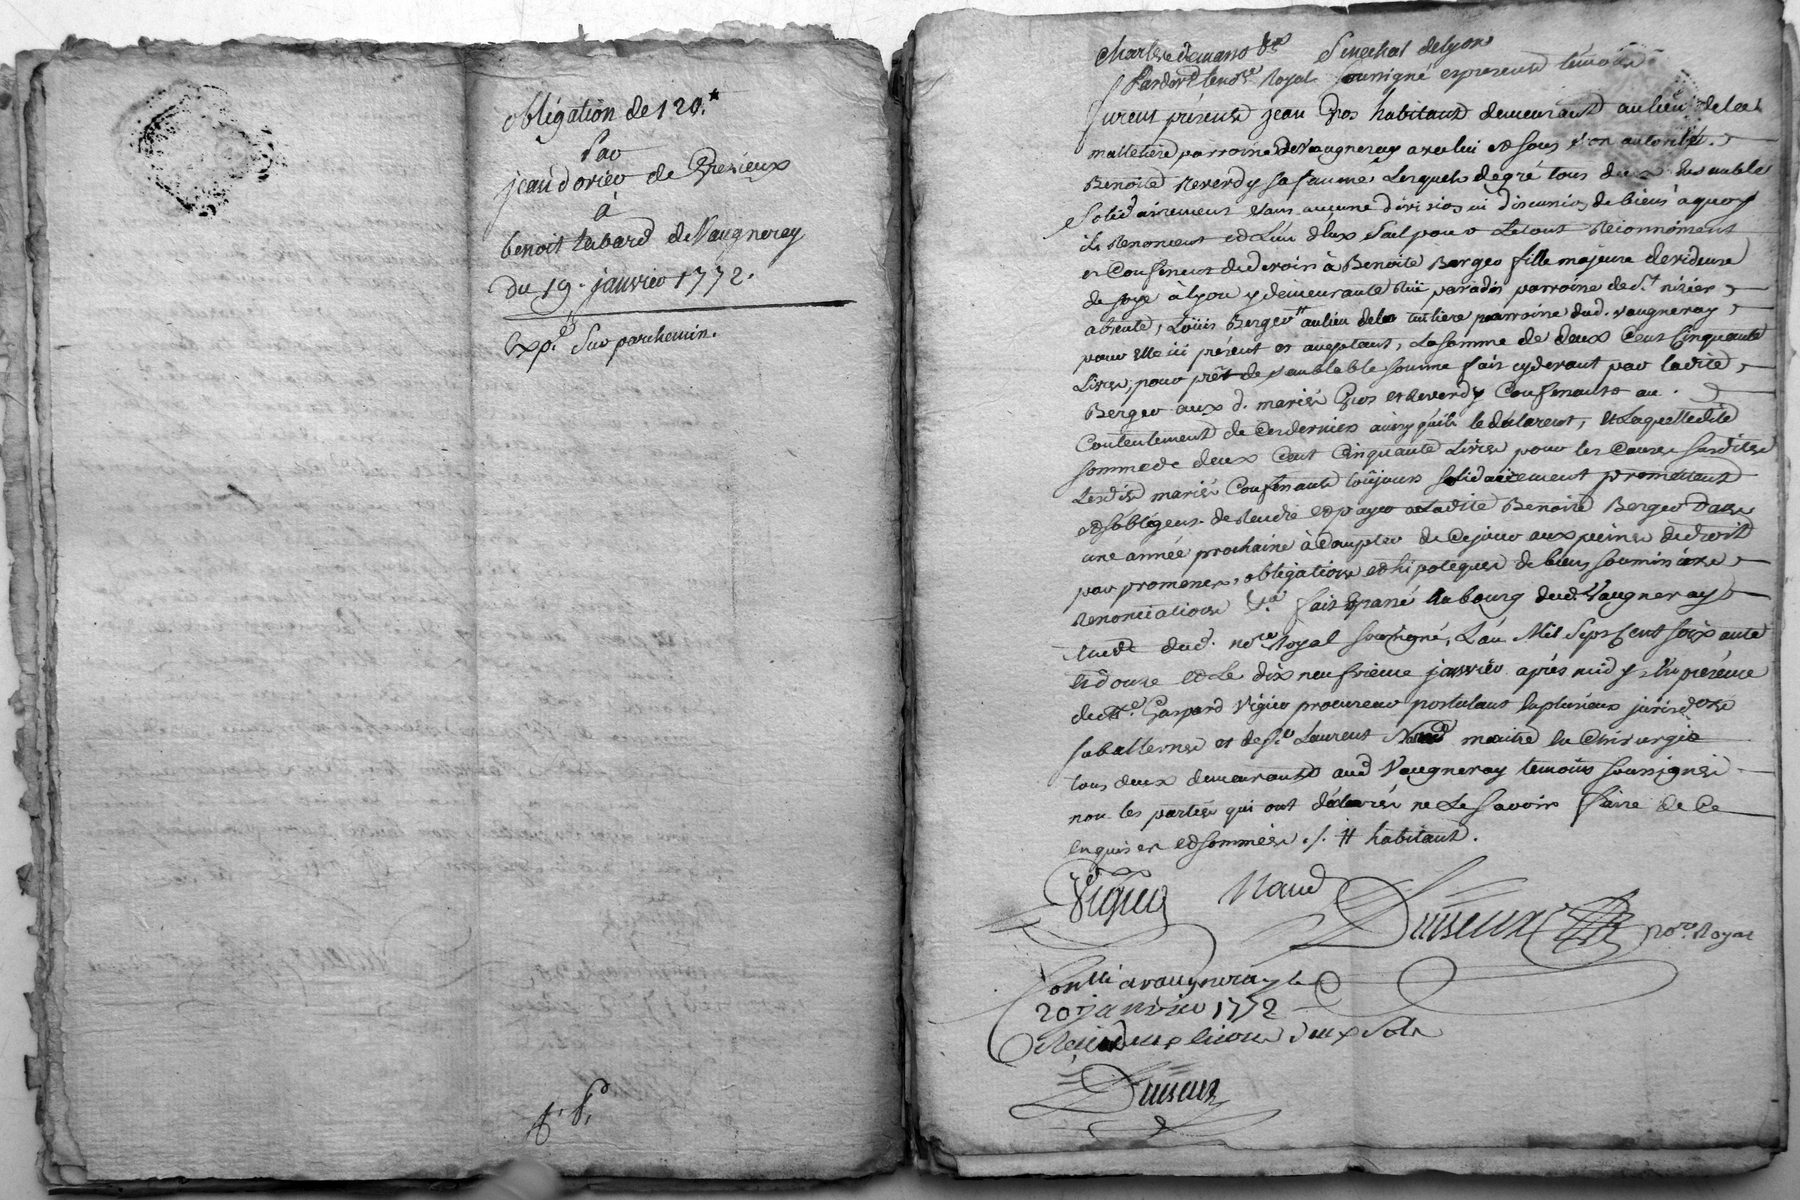 obligation de 120.#
Par
jean dorieu de Grezieux
à
benoit labard de Vaugneray
Du 19. janvier 1772.
Exp.é Sur parchemin.
Charles Senechal de lyon
Pardevt le no.re Royal soussigné et presents temoins
furent présents jean Gros habitant demeurant au lieu de la
malletiere parroisse de Vaugneray avec lui et sous son autorité.
Benoite Reverdy sa famme, Lesquels de gré tous deux ensamble
Solidairement et sans aucune division ni discution de biens à quoy
ils Renoncent et L'un d'Eux Seul pour Letout Reconnoissent
et Confessent devoir à Benoite Berger fille majeure devideuse
de soye à lyon y demeurante Rüe paradis parroisse de St. nizier
absente, Loüis Berger # au lieu de la parroisse dud. vaugneray,
pour elle ici présent et acceptant, La somme de deux Cent Cinquante
Livres, pour prêt de samblable somme fait cy devant par ladite
Berger aux d. mariés Gros et Reverdy Confessants au
Contentement de Ces derniers ainsy qu'ils le déclarent, et Laquelle dite
somme de deux Cent Cinquante Livres pour les Causes susdites
Lesdits mariés Confessants toûjours solidairement promettent
et s'obligent de Rendre et payer a Ladite Benoite Berger Dans
une année prochaine à Compter de Ce jour aux peines de droit
par promesses, obligations et hipoteques de biens soumissions
Renonciations &.a fait & passé au bourg dud. Vaugneray
Etude dud. no.re Royal soussigné, L'an Mil Sept Cent soixante
et douze et Le dix neufvieme janvier après midy En présence
de M.e Gaspard Viguer procureur postulant En plusieurs jurisd.ons
subalternes et de s.r Laurent Naud maitre En Chirurgie
tous deux demeurants aud Vaugneray temoins soussignés
non les parties qui ont déclarés ne Le Savoir faire de Ce
enquises et sommées ./. # habitant.
Viguer Naud
Duiseux no.re Royal
Con.llé a vaugneray le
20 janvier 1772
Reçu deux livres deux Sols
Duiseux